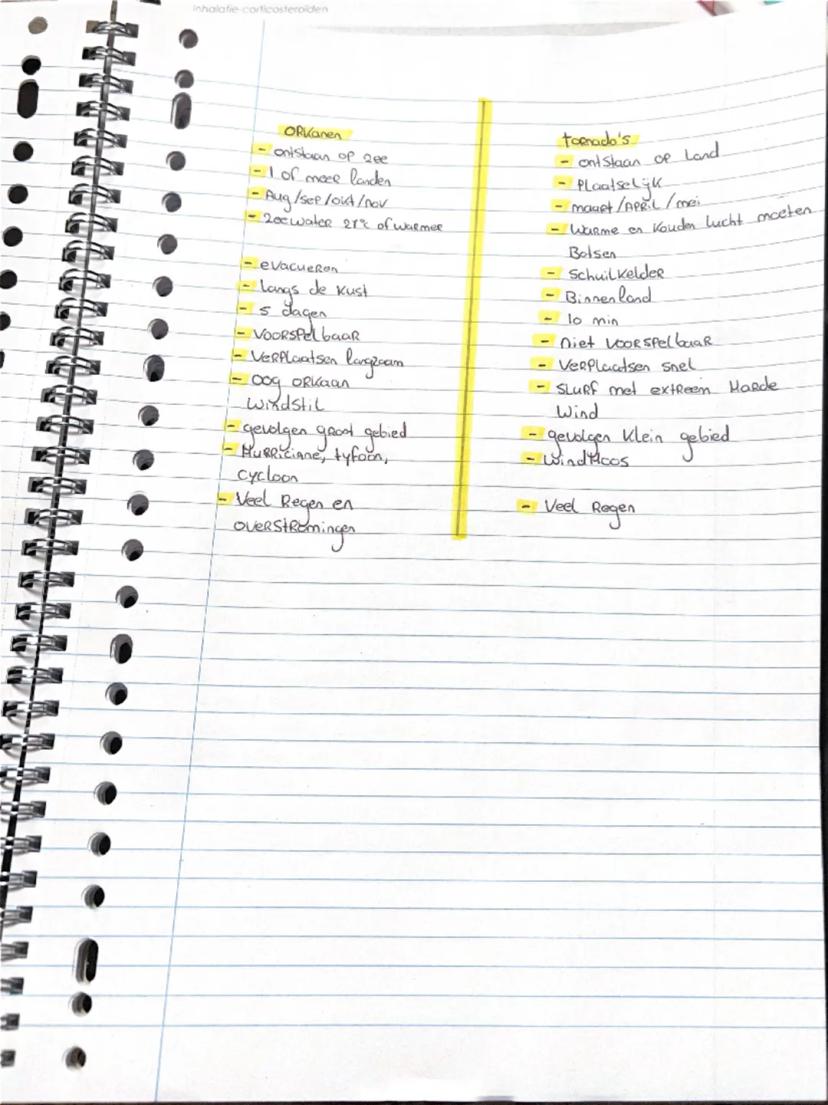 inhalatie-corticosteroïden
Orkanen
- ontstaan op zee
- 1 of meer landen
- Aug/sep/okt/nov
- zeewater 27°C of warmer
- evacueren
- langs de kust
- 5 dagen
- voorspelbaar
- verplaatsen langzaam
- oog orkaan
windstil
- gevolgen groot gebied
- Hurriciane, tyfoon,
cycloon
- Veel Regen en
overstromingen
tornado's
- ontstaan op land
- plaatselijk
- maart/April/mei
- warme en kouden lucht moeten
Botsen
- schuilkelder
- Binnenland
- 10 min
- niet voorspelbaar
- verplaatsen snel
- slurf met extreem Harde
wind
- gevolgen klein gebied
- windHoos
- Veel Regen